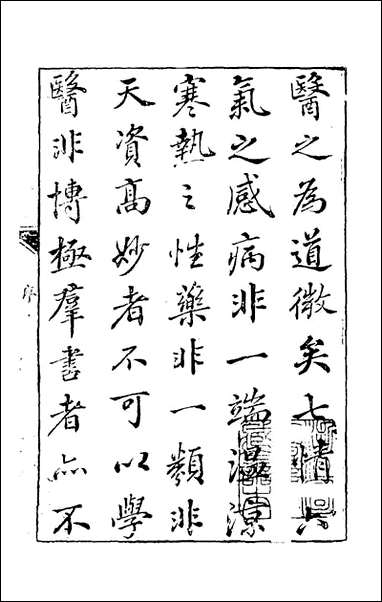 醫之為道微矣七情六
氣之感病非一端溫涼
寒熱之性藥非一類非
天資高妙者不可以學
醫非博極羣書者亦不
序